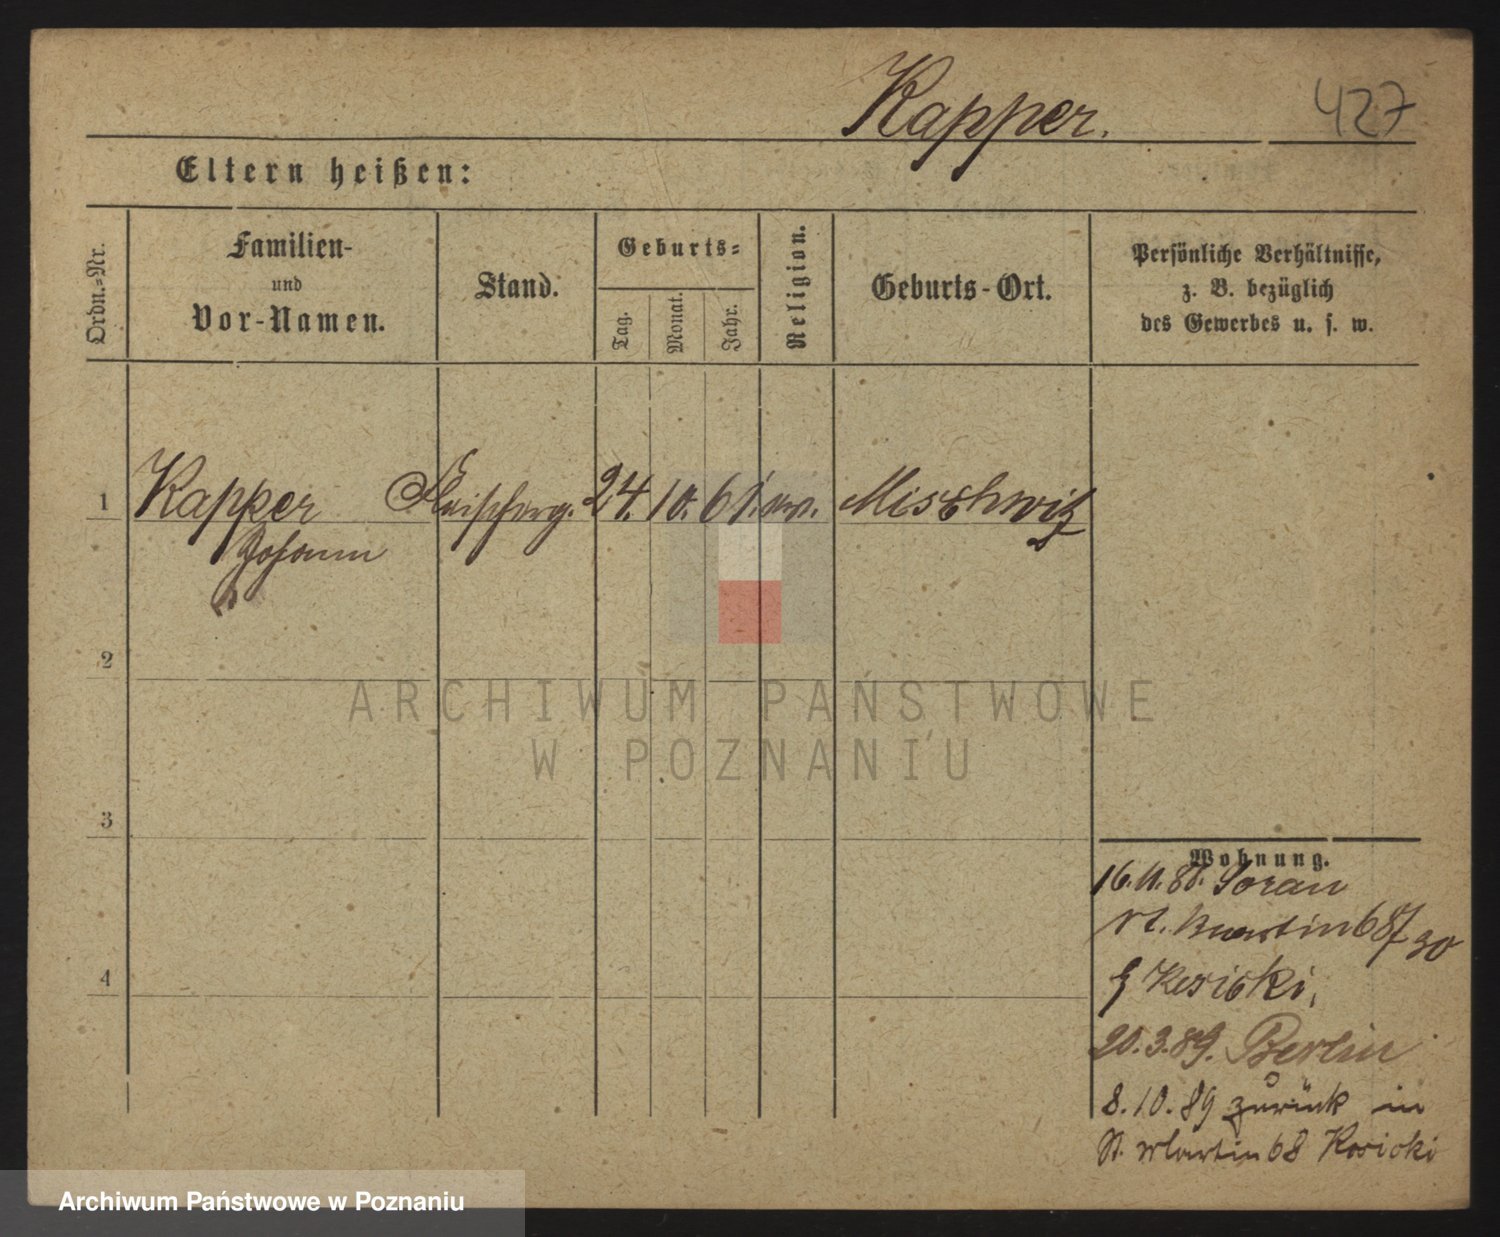 Kapper.
427
Eltern heißen:
Ordn.-Nr.
Familien-
und
Vor-Namen.
Stand.
Geburts-
Tag.
Monat.
Jahr.
Religion.
Geburts-Ort.
Persönliche Verhältnisse,
z. B. bezüglich
des Gewerbes u. s. w.
1 Kapper Fleischerg. 24. 10. 61. Mischwitz
Johann
2
ARCHIWUM PAŃSTWOWE
W POZNANIU
3
4
Wohnung.
16.11.88. Soran
St. Martin 68
Kosicki,
20.3.89. Berlin
8.10.89 zurück in
St. Martin 68 Kosicki
Archiwum Państwowe w Poznaniu